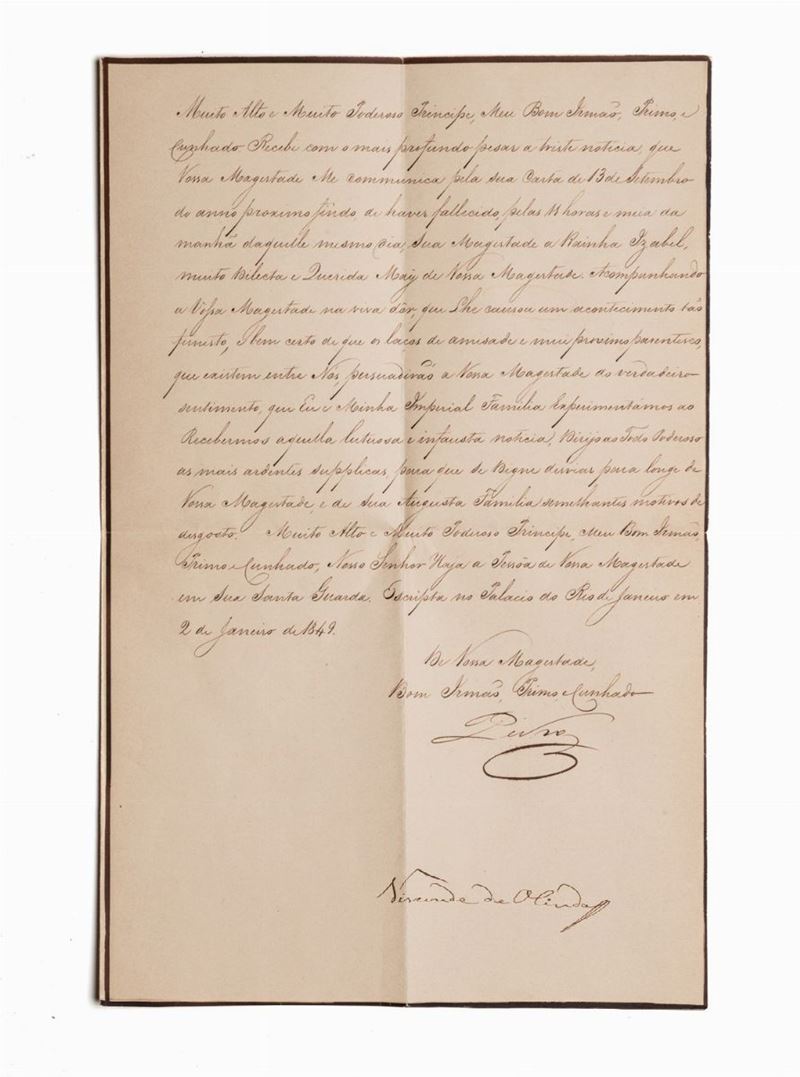 Muito Alto e Muito Poderoso Principe, Meu Bom Irmão, Primo, e
Cunhado Recebi com o mais profundo pesar a triste noticia, que
Vossa Magestade Me communica pela sua Carta de 13 de Setembro
do anno proximo findo de haver fallecido, pelas 11 horas e meia da
manhã daquelle mesmo dia, Sua Magestade a Rainha Izabel,
muito Dilecta e Querida Mãy de Vossa Magestade. Acompanhando
a Vossa Magestade na viva dôr, que Lhe causou um acontecimento tão
funesto, e bem certo de que os laços de amisade e mui proximo parentesco,
que existem entre Nós persuadirão a Vossa Magestade do verdadeiro
sentimento, que Eu e Minha Imperial Familia Experimentámos ao
Recebermos aquella luctuosa e infausta noticia, Dirijo ao Todo Poderoso
as mais ardentes supplicas, para que Se Digne desviar para longe de
Vossa Magestade, e de sua Augusta Familia semelhantes motivos de
desgosto. Muito Alto e Muito Poderoso Principe, Meu Bom Irmão,
Primo, e Cunhado, Nosso Senhor Haja a Pessôa de Vossa Magestade
em Sua Santa Guarda. Escripta no Palacio do Rio de Janeiro em
2 de Janeiro de 1849.
De Vossa Magestade,
Bom Irmão, Primo, e Cunhado
Pedro
Visconde de Olinda